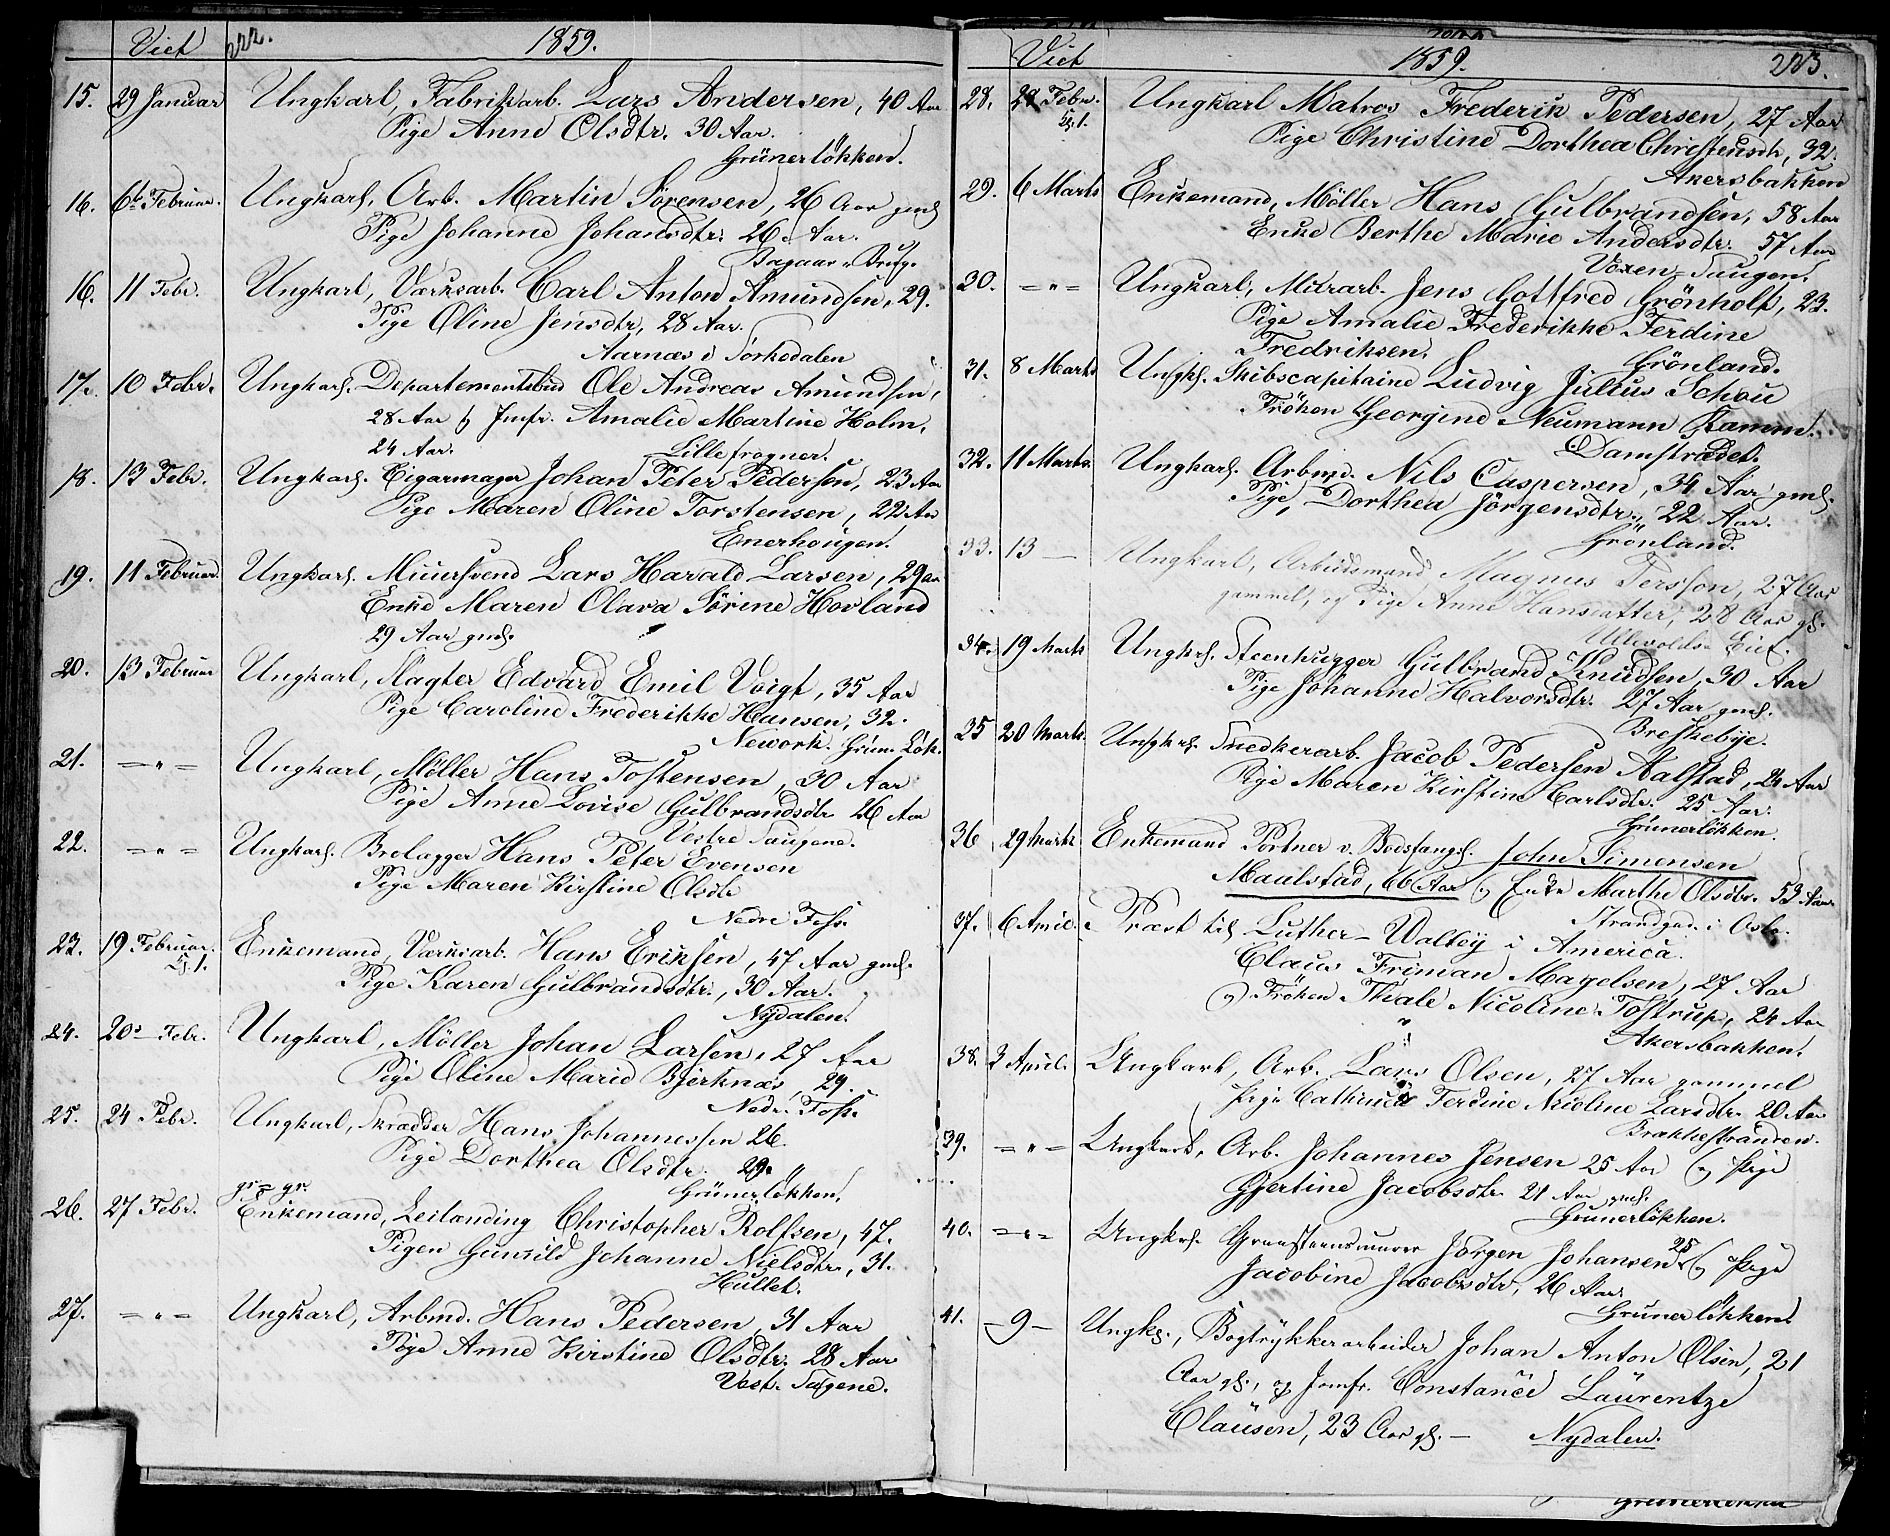 Viet 222. 1859.
15. 29 Januar Ungkarl, Fabrikarb. Lars Andersen, 40 Aar
Pige Anne Olsdtr. 30 Aar.
Grünerløkken.
16. 6te Februar. Ungkarl, Arb. Martin Sørensen, 26 Aar gml
Pige Johanne Johansdtr. 26 Aar.
16. 11 Febr. Ungkarl, Værksarb. Carl Anton Amundsen, 29.
Pige Oline Jensdtr, 28 Aar.
Aarnæs i Sørkedalen
17. 10 Febr. Ungkarl. Departementsbud Ole Andreas Amundsen,
28 Aar og Jmfr. Amalie Martine Holm,
24 Aar. Lillefrogner.
18. 13 Febr. Ungkarl. Cigarmager Johan Peter Pedersen, 23 Aar
Pige Maren Oline Torstensen, 22 Aar
Enerhougen.
19. 11 Februar. Ungkarl. Muursvend Lars Harald Larsen, 29 Aar
Enke Maren Olava Sørine Hovland
29 Aar gml.
20. 13 Februar Ungkarl, Slagter Edvard Emil Voigt, 35 Aar
Pige Caroline Frederikke Hansen, 32.
Newÿork. Grün. Løk.
21. — " — Ungkarl, Møller Hans Tostensen, 30 Aar
Pige Anne Lovise Gulbrandsdtr 26 Aar
Vestre Saugene.
22. — " — Ungkarl. Brolægger Hans Peter Evensen
Pige Maren Kirstine Olsdtr
Nedre Foss.
23. 19 Februar. Lj. 1. Enkemand, Værksarb. Hans Eriksen, 47 Aar gml.
Pige Karen Gulbrandsdtr., 30 Aar.
Nydalen.
24. 20de Febr. Ungkarl, Møller Johan Larsen, 27 Aar
Pige Oline Marie Bjerknæs, 29.
Nedre Foss.
25. 24 Febr. Ungkarl, Skrædder Hans Johannessen 26.
Pige Dorthea Olsdtr. 29.
Grünerløkken.
gr = gr.
26. 27 Febr. Enkemand, Leilending Christopher Rolfsen, 47.
Pigen Gunild Johanne Nielsdtr, 31.
Hullet.
27. — " — Ungkarl, Arbmd. Hans Pedersen, 31 Aar
Pige Anne Kirstine Olsdtr. 28 Aar
Vest. Sagene.
Viet 1859. 223.
28. 27 Febr. Lj. 1. Ungkarl Matros Frederik Pedersen, 27 Aar
Pige Christine Dorthea Christensdtr, 32.
Akersbakken
29. 6 Marts Enkemand, Møller Hans Gulbrandsen, 58 Aar
Enke Berthe Marie Andersdtr. 57 Aar
Voxen-Saugen.
30. — " — Ungkarl, Murarb. Jens Gottfred Grönholt, 23.
Pige Amalie Frederikke Ferdine
Fredriksen. Grönland.
31. 8 Marts Ungkl. Skibscapitaine Ludvig Julius Schou
Frøken Georgine Neumann Kamm.
Damstrædet.
32. 11 Marts Ungkarl. Arbmd. Nils Caspersen, 34 Aar gml.
Pige, Dorthea Jørgensdtr., 22 Aar.
Grönland.
33. 13 — Ungkarl, Arbeidsmand Magnus Persson, 27 Aar
gammel, og Pige Anne Hansdatter, 28 Aar gl.
Ullevolds Eie.
34. 19 Marts Ungkrl. Steenhugger Gulbrand Knudsen, 30 Aar
Pige Johanne Halvorsdtr. 27 Aar gml.
Breskebye.
35 20 Marts. Ungkrl. Snedkerarb. Jacob Pedersen Aalstad, 24 Aar
Pige Maren Kirstine Carlsdtr. 25 Aar.
Grünerløkken.
36 29 Marts Enkemand Portner v. Bodsfængsl. John Simensen
Maalstad, 66 Aar og Enke Marthe Olsdtr. 53 Aar
Strandgad. i Oslo.
37. 6 April. Præst til Luther-Walley i America.
Claus Friman Magelsen, 27 Aar
og Frøken Thale Nicoline Tostrup, 24 Aar
Akersbakken.
38. 3 April. Ungkarl, Arb. Lars Olsen, 27 Aar gammel
Pige Cathrine Ferdine Nicoline Larsdtr. 20 Aar
Brækkestranden.
39. — " — Ungkarl, Arb. Johannes Jensen 25 Aar og Pige
Gjertine Jacobsdtr 21 Aar gml.
Grünerløkken.
40. — " — Ungkrl. Graasteensmurer Jørgen Johansen 25 og Pige
Jacobine Jacobsdtr, 26 Aar
Grünerløkken.
41. — 9 — Ungkl., Bogtrykkerarbeider Johan Anton Olsen, 21
Aar gl., og Jomfr. Constance Laurentze
Clausen, 23 Aar gl. — Nydalen.
Grünerløkken